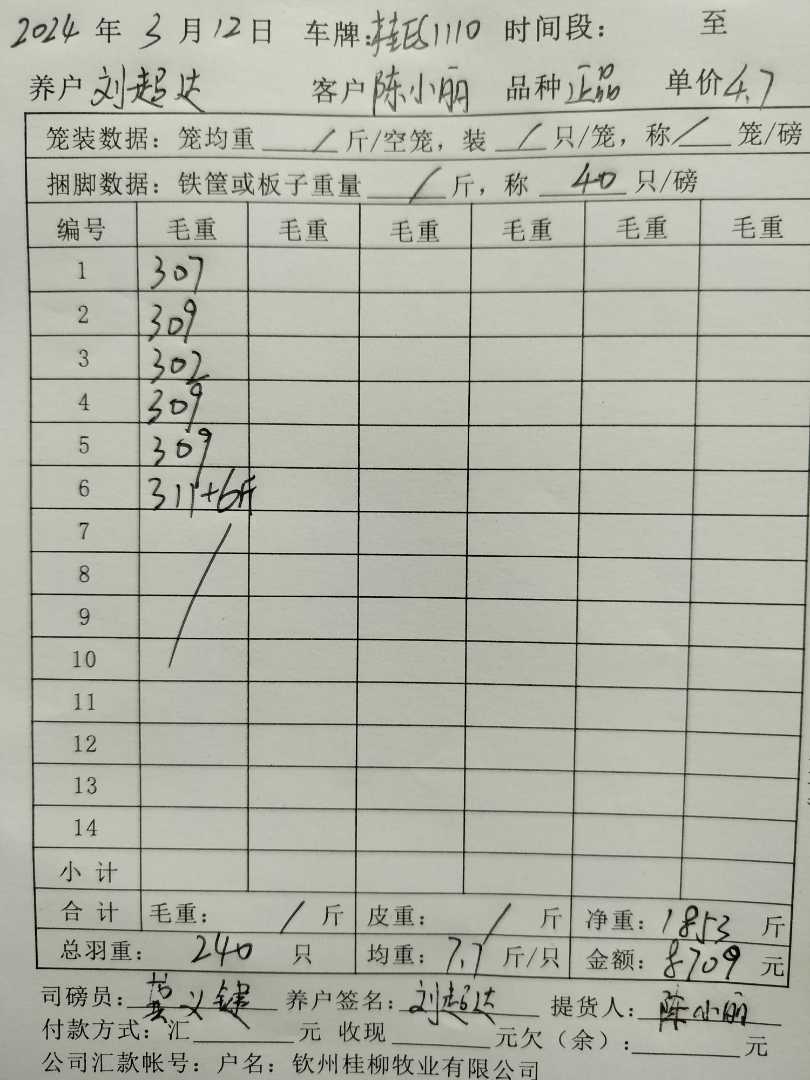 2024 年 3 月 12 日 车牌:桂E51110 时间段: 至
养户 刘超达 客户 陈小丽 品种 正品 单价 4.7
笼装数据: 笼均重 / 斤/空笼, 装 / 只/笼, 称 / 笼/磅
捆脚数据: 铁筐或板子重量 / 斤, 称 40 只/磅
编号 毛重 毛重 毛重 毛重 毛重 毛重
1 307
2 309
3 302
4 309
5 309
6 311+6斤
7
8
9
10
11
12
13
14
小 计
合 计 毛重: / 斤 皮重: / 斤 净重: 1853 斤
总羽重: 240 只 均重: 7.7 斤/只 金额: 8709 元
司磅员: 黄义键 养户签名: 刘超达 提货人: 陈小丽
付款方式: 汇 元 收现 元欠(余): 元
公司汇款帐号: 户名: 钦州桂柳牧业有限公司